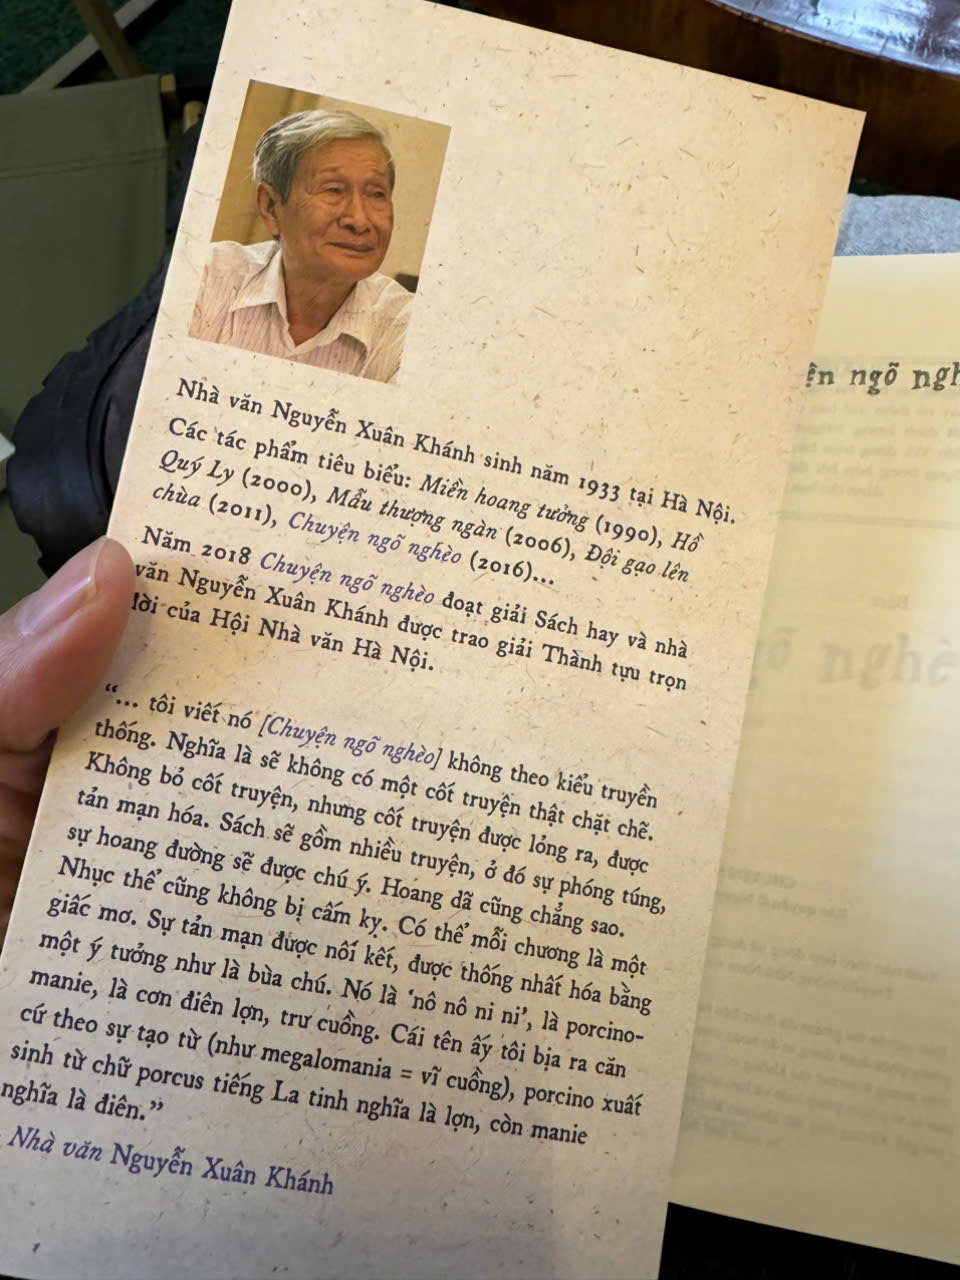 Nhà văn Nguyễn Xuân Khánh sinh năm 1933 tại Hà Nội.
Các tác phẩm tiêu biểu: Miền hoang tưởng (1990), Hồ
Quý Ly (2000), Mẫu thượng ngàn (2006), Đội gạo lên
chùa (2011), Chuyện ngõ nghèo (2016)...
Năm 2018 Chuyện ngõ nghèo đoạt giải Sách hay và nhà
văn Nguyễn Xuân Khánh được trao giải Thành tựu trọn
đời của Hội Nhà văn Hà Nội.
“... tôi viết nó [Chuyện ngõ nghèo] không theo kiểu truyền
thống. Nghĩa là sẽ không có một cốt truyện thật chặt chẽ.
Không bỏ cốt truyện, nhưng cốt truyện được lỏng ra, được
tản mạn hóa. Sách sẽ gồm nhiều truyện, ở đó sự phóng túng,
sự hoang đường sẽ được chú ý. Hoang dã cũng chẳng sao.
Nhục thể cũng không bị cấm kỵ. Có thể mỗi chương là một
giấc mơ. Sự tản mạn được nối kết, được thống nhất hóa bằng
một ý tưởng như là bùa chú. Nó là ‘nô nô ni ni’, là porcino-
manie, là cơn điên lợn, trư cuồng. Cái tên ấy tôi bịa ra căn
cứ theo sự tạo từ (như megalomania = vĩ cuồng), porcino xuất
sinh từ chữ porcus tiếng La tinh nghĩa là lợn, còn manie
nghĩa là điên.”
Nhà văn Nguyễn Xuân Khánh
ện ngõ ngh
gõ nghè